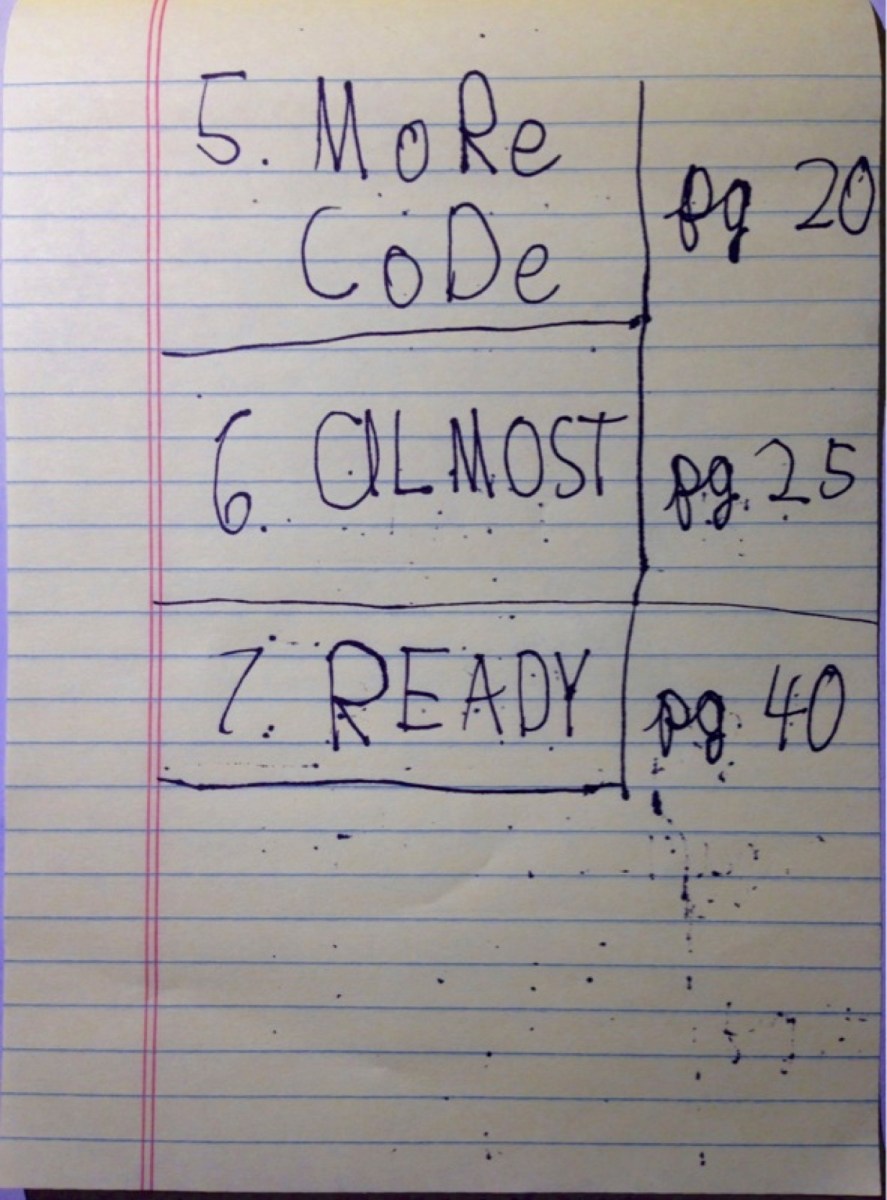 5. MoRe
CoDe
pg 20
6. aLMOST
pg. 25
7. READY
pg 40